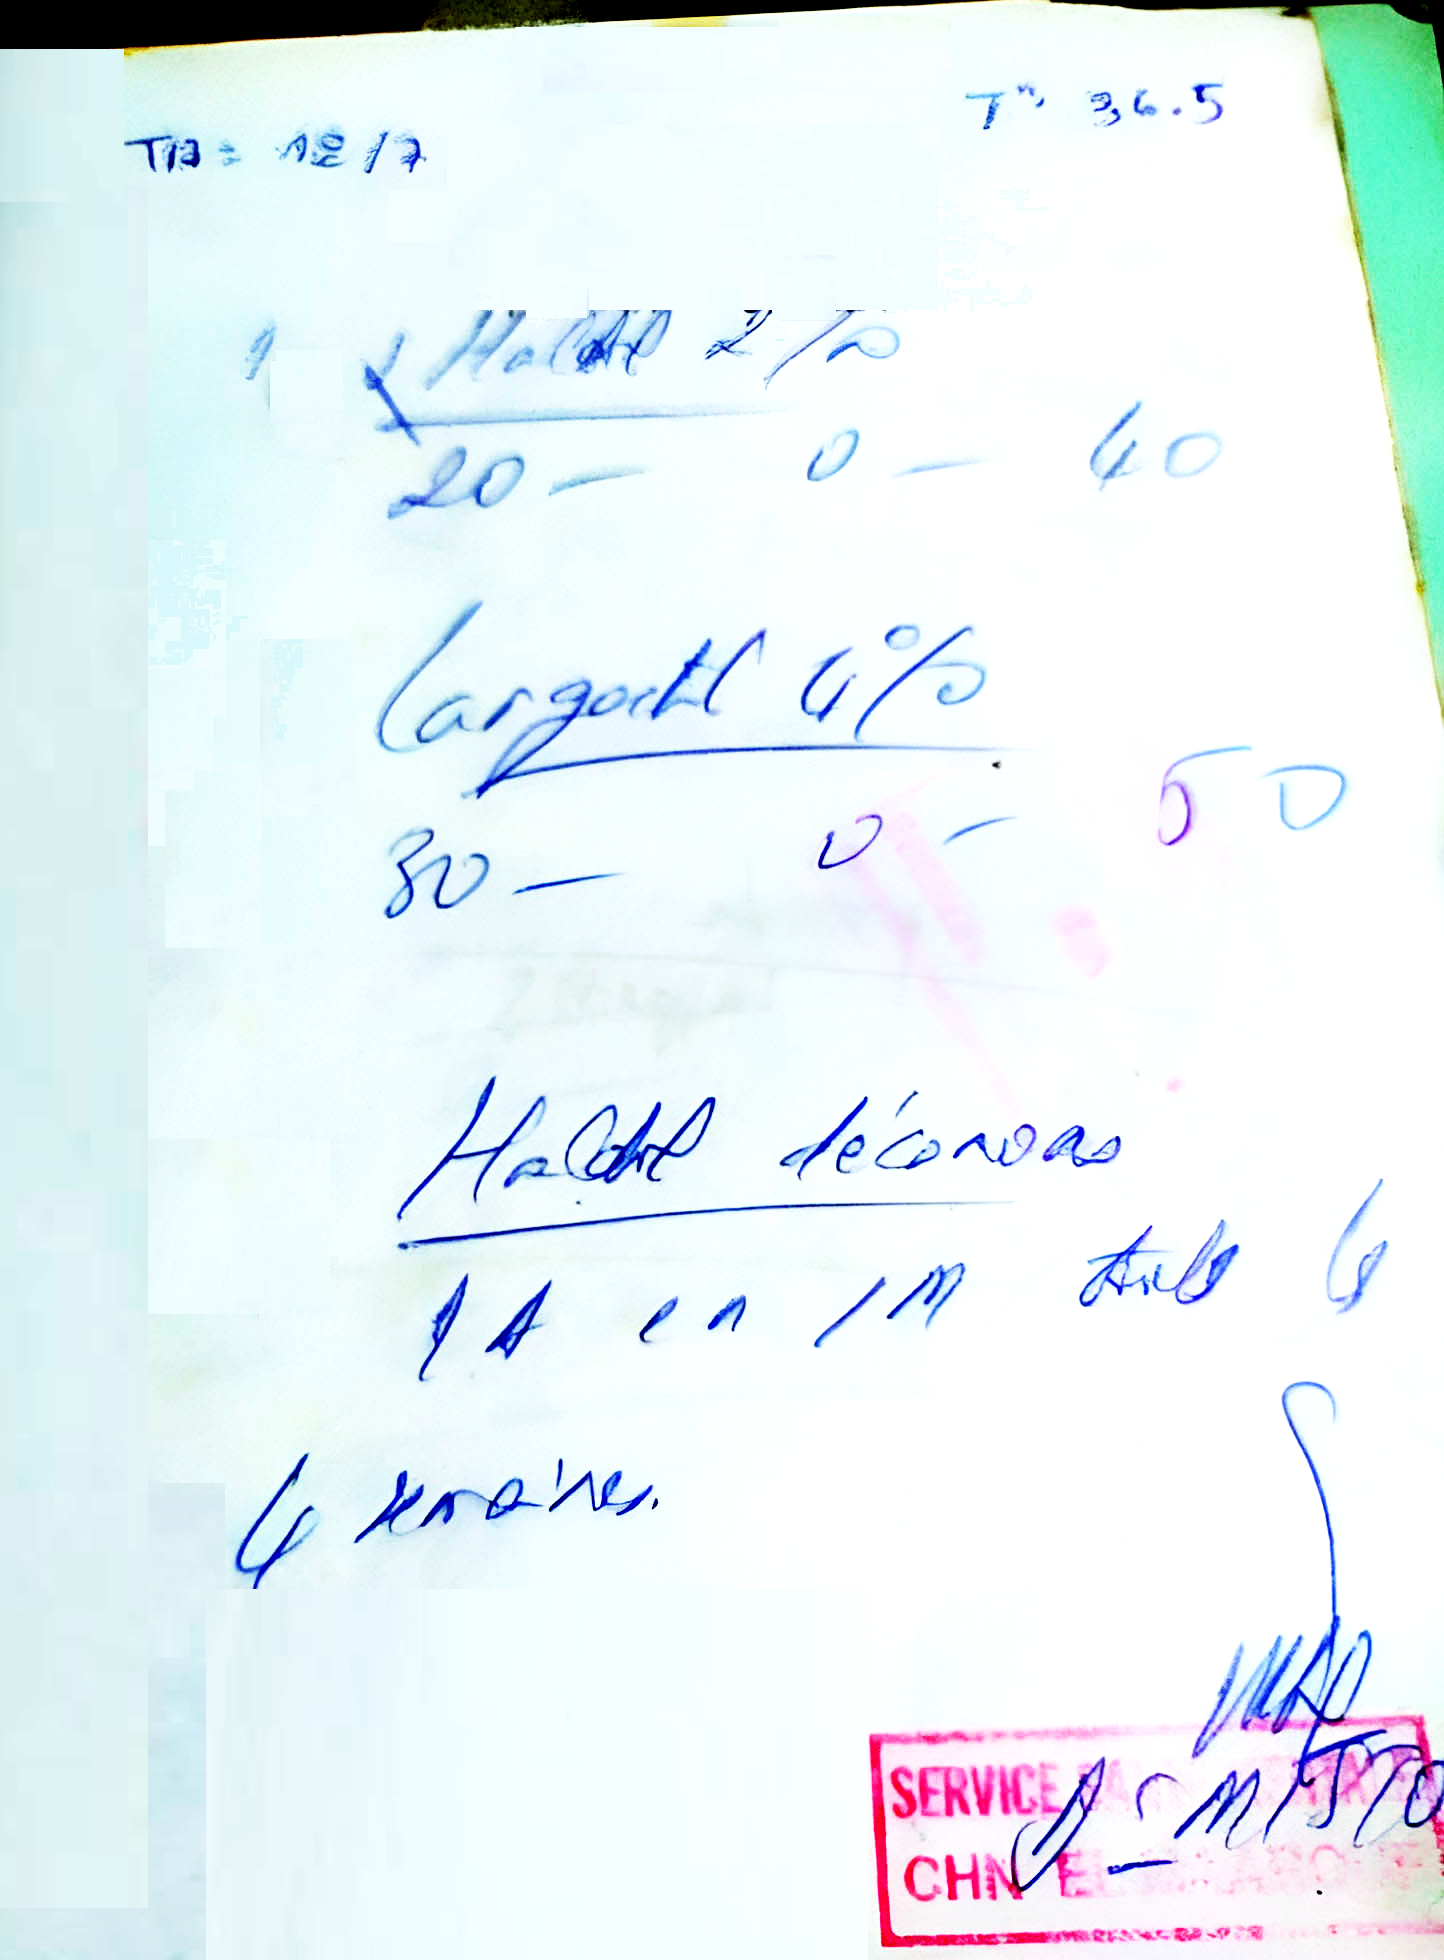 T° 36.5
TA: 12/7
1 Haldol 2%
20 — 0 — 40
Largactil 4%
30 — 0 — 50
Haldol décanoas
1 A en IM ttes les
4 semaines.
SERVICE
CHN EL